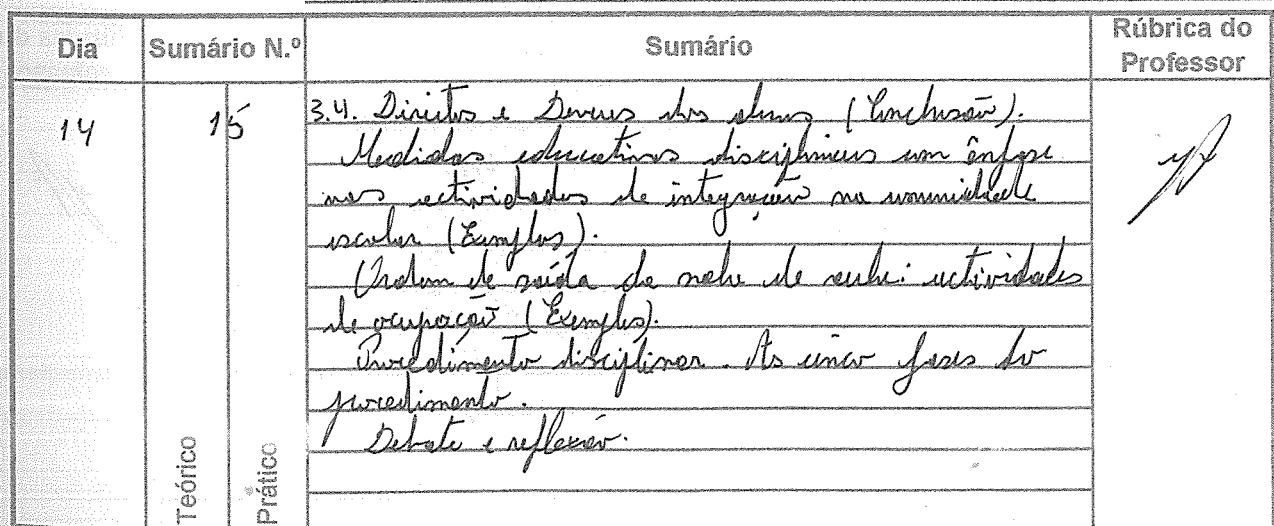 Dia Sumário N.º Sumário Rúbrica do Professor
14 15 3.4. Direitos e Deveres dos alunos (Conclusão).
Medidas educativas disciplinares com ênfase
nas actividades de integração na comunidade
escolar (Exemplos).
Ordem de saída da sala de aula: actividades
de ocupação (Exemplos).
Procedimento disciplinar. As cinco fases do
procedimento.
Debate e reflexão.
Teórico
Prático